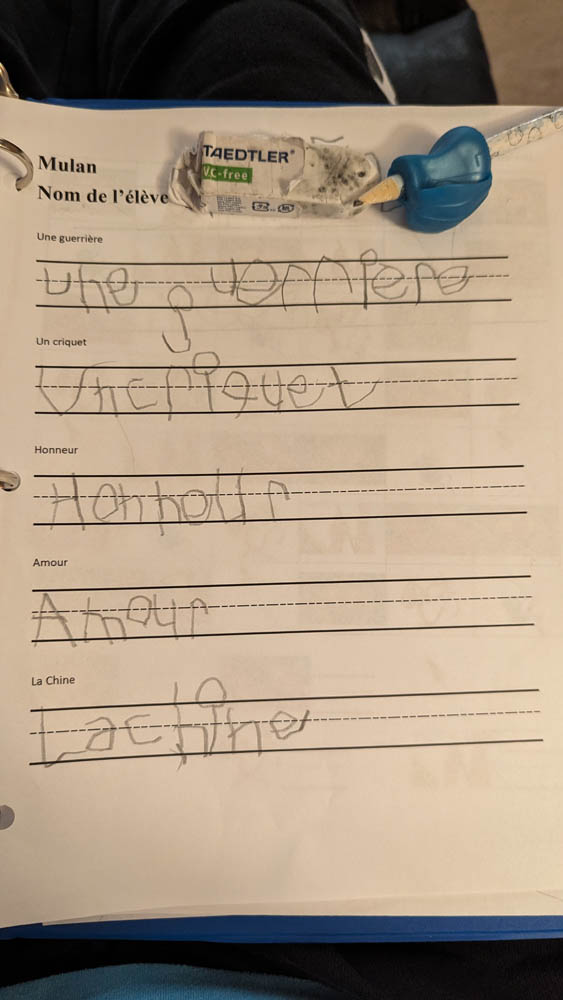 Mulan
TAEDTLER®
VC-free
Nom de l'élève
Une guerrière
une guerriere
Un criquet
Uncriquet
Honneur
Honnour
Amour
Amour
La Chine
Lachine